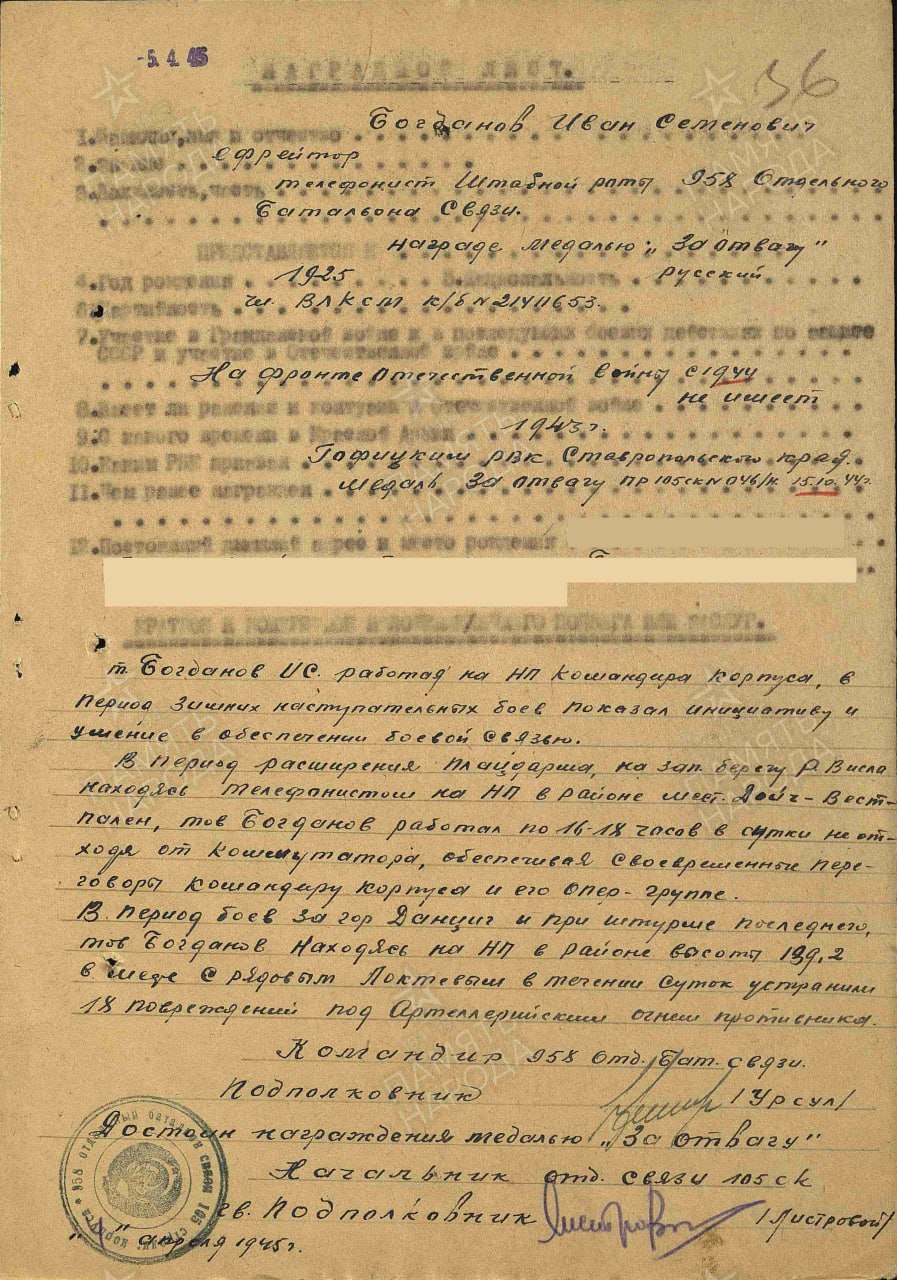 -5.4.45
НАГРАДНОЙ ЛИСТ.
36
1. Фамилия, имя и отчество Богданов Иван Семенович
2. Звание ефрейтор
3. Должность, часть телефонист Штабной роты 958 Отдельного
Батальона Связи.
ПРЕДСТАВЛЯЕТСЯ К награде медалью „За отвагу"
4. Год рождения 1925 5. Национальность русский
6. Партийность чл. ВЛКСМ к/б №21411653.
7. Участие в Гражданской войне и в последующих боевых действиях по защите
СССР и участие в Отечественной войне
На фронте Отечественной войны с 1944
8. Имеет ли ранения и контузии в отечественной войне не имеет
9. С какого времени в Красной Армии 1943 г.
10. Каким РВК призван Гофицким РВК Ставропольского край.
11. Чем ранее награжден Медаль За отвагу пр 105 ск №046/н. 15.10.44г.
12. Постоянный адрес и место рождения
т. Богданов ИС. работая на НП Командира Корпуса, в
период зимних наступательных боев показал инициативу и
умение в обеспечении боевой связью.
В период расширения плацдарма, на зап. берегу р. Висла
находясь телефонистом на НП в районе мест. Дойч-Вест-
пален, тов Богданов работал по 16-18 часов в сутки не от-
ходя от коммутатора, обеспечивая своевременные пере-
говоры командиру корпуса и его опер-группе.
В период боев за гор Данциг и при штурме последнего,
тов Богданов находясь на НП в районе высоты 199,2
в месте с рядовым Локтевым в течении суток устранили
18 повреждений под Артеллерийским огнем противника.
Командир 958 отд. Бат. связи.
Подполковник /Урсул/
Достоин награждения медалью „За отвагу"
Начальник отд. связи 105 ск
гв. Подполковник /Листровой/
" " апреля 1945г.
958 ОТДЕЛЬНЫЙ БАТАЛЬОН СВЯЗИ 105 СТРЕЛК. КОРПУСА
ПАМЯТЬ НАРОДА